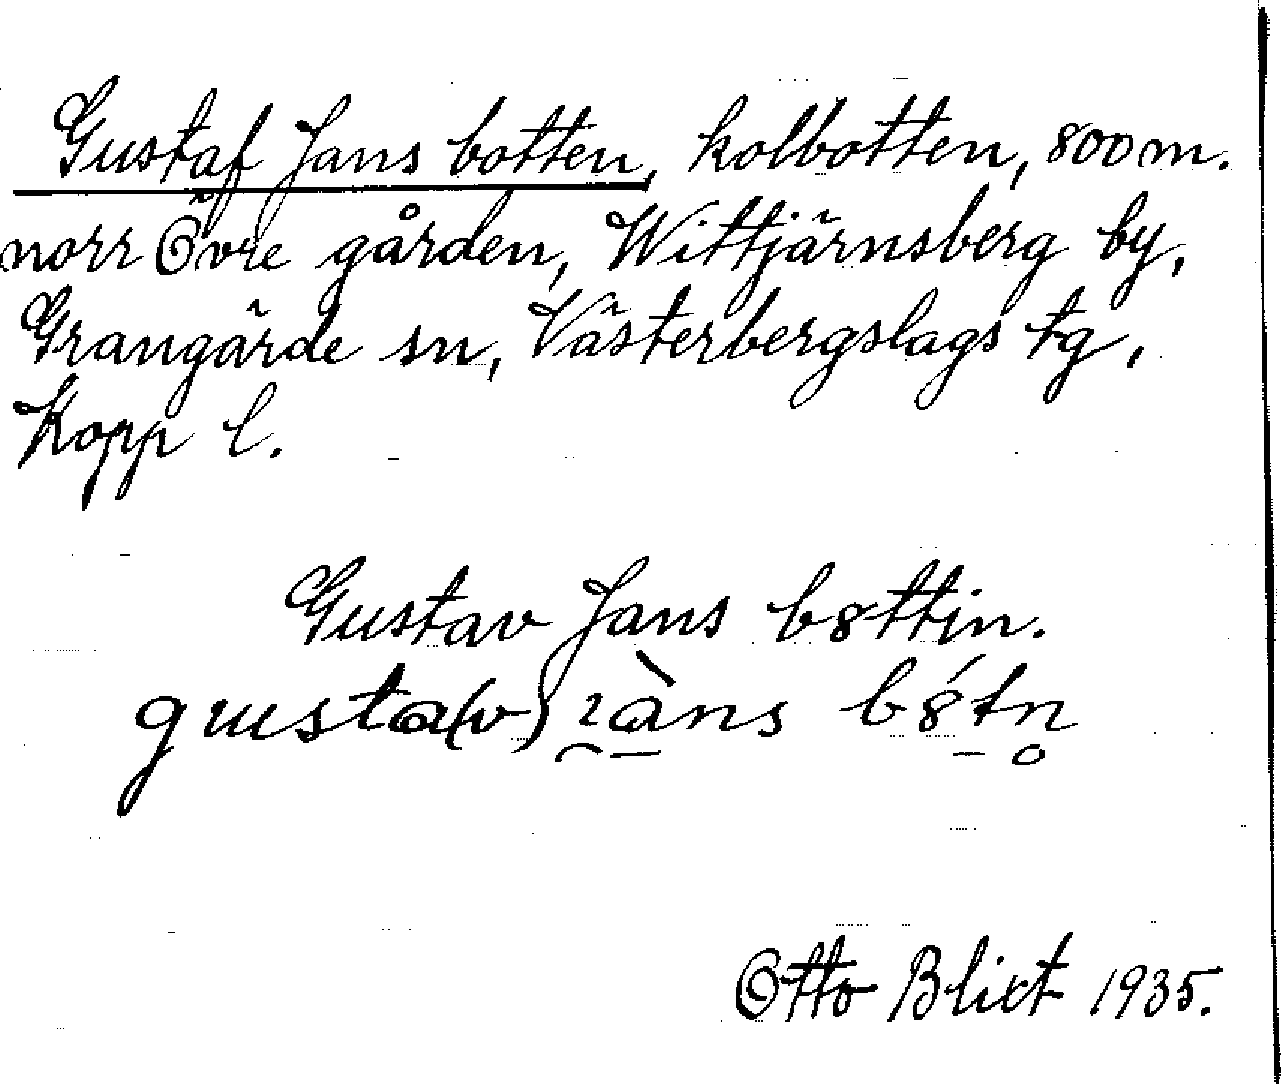 Gustaf Jans botten, kolbotten, 800 m.
norr Övre gården, Wittjärnsberg by,
Grangärde sn, Västerbergslags tg,
Kopp l.
Gustav Jans b8ttin.
gusta(v) jàns b8́tn̥
Otto Blixt 1935.